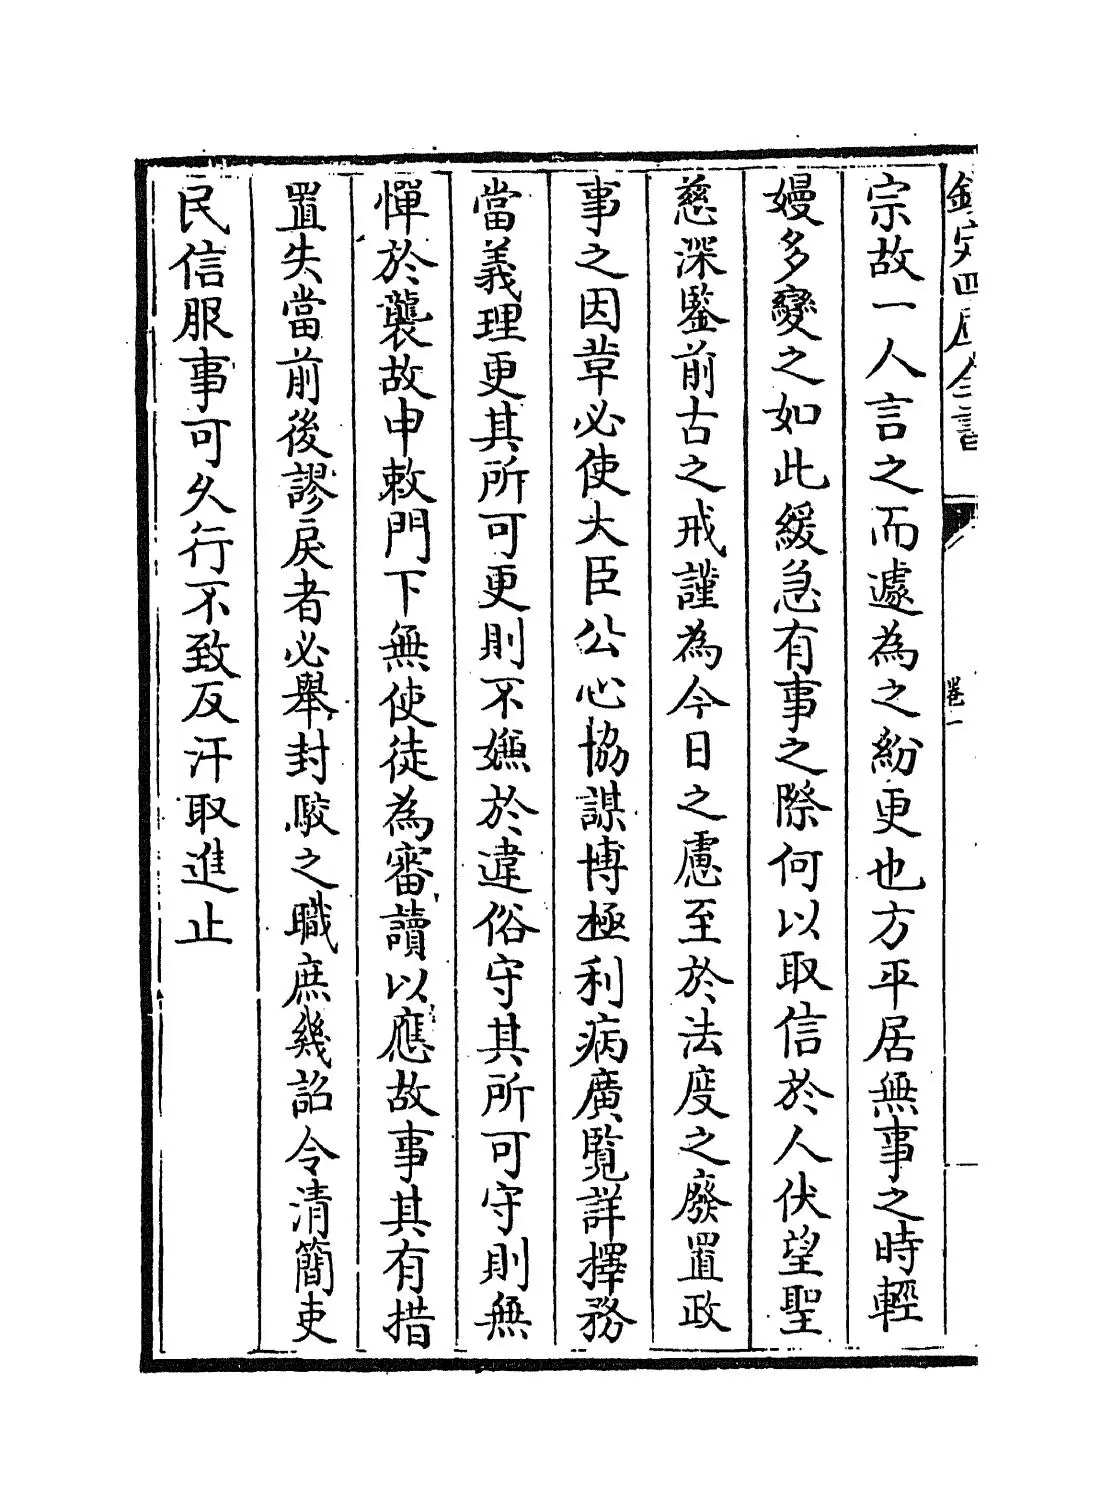 欽定四庫全書
卷一
宗故一人言之而遽為之紛更也方平居無事之時輕
嫚多變之如此緩急有事之際何以取信於人伏望聖
慈深鑒前古之戒謹為今日之慮至於法度之廢置政
事之因革必使大臣公心協謀博極利病廣覧詳擇務
當義理更其所可更則不嫌於違俗守其所可守則無
憚於襲故申敕門下無使徒為審讀以應故事其有措
置失當前後謬戾者必舉封駮之職庶幾詔令清簡吏
民信服事可久行不致反汗取進止